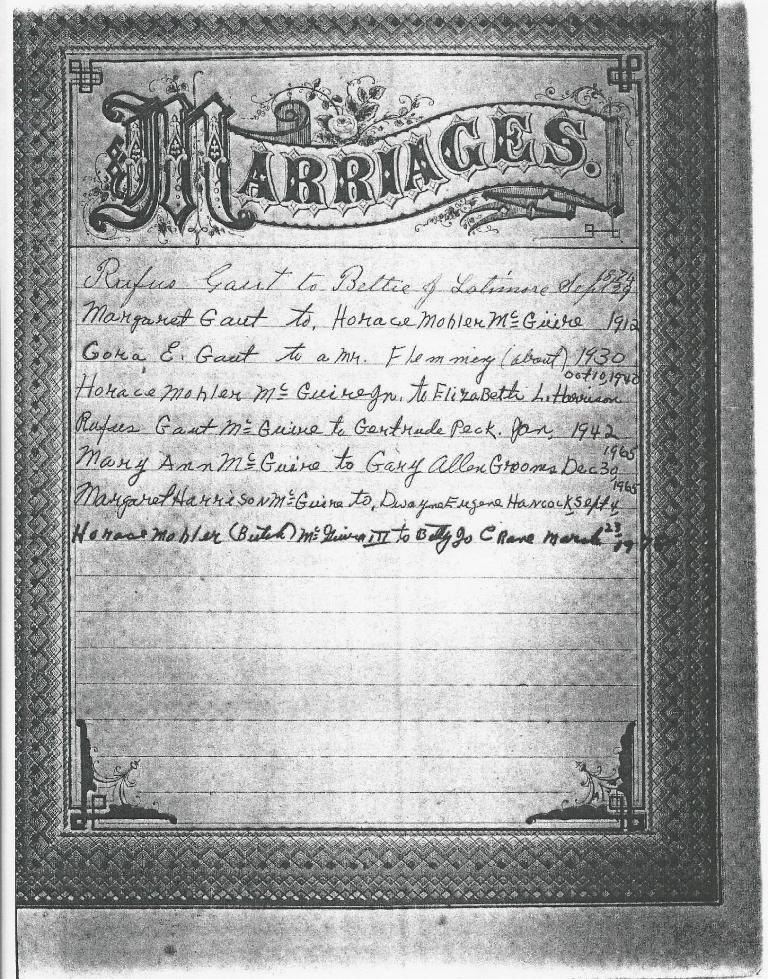 MARRIAGES.
Rufus Gaut to Bettie J Latimore Sept 29 1874
Margaret Gaut to, Horace Mohler McGuire 1912
Cora E. Gaut to a mr. Flemmey (about) 1930
Horace Mohler McGuire Jn. to Elizabeth L. Harrison Oct 10, 1940
Rufus Gaut McGuire to Gertrude Peck. Jan, 1942
Mary Ann McGuire to Gary Allen Grooms Dec 30 1965
Margaret Harrison McGuire to, Dwayne Eugene Hancock Sept 4 1965
Horace Mohler (Butch) McGuire III to Betty Jo Crane March 23